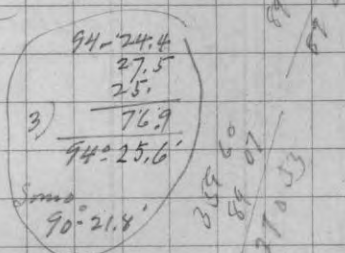 94-24.4
27.5
25.
3) 76.9
94° 25.6'
90° 21.8'
89
359 60
89 07
270 53